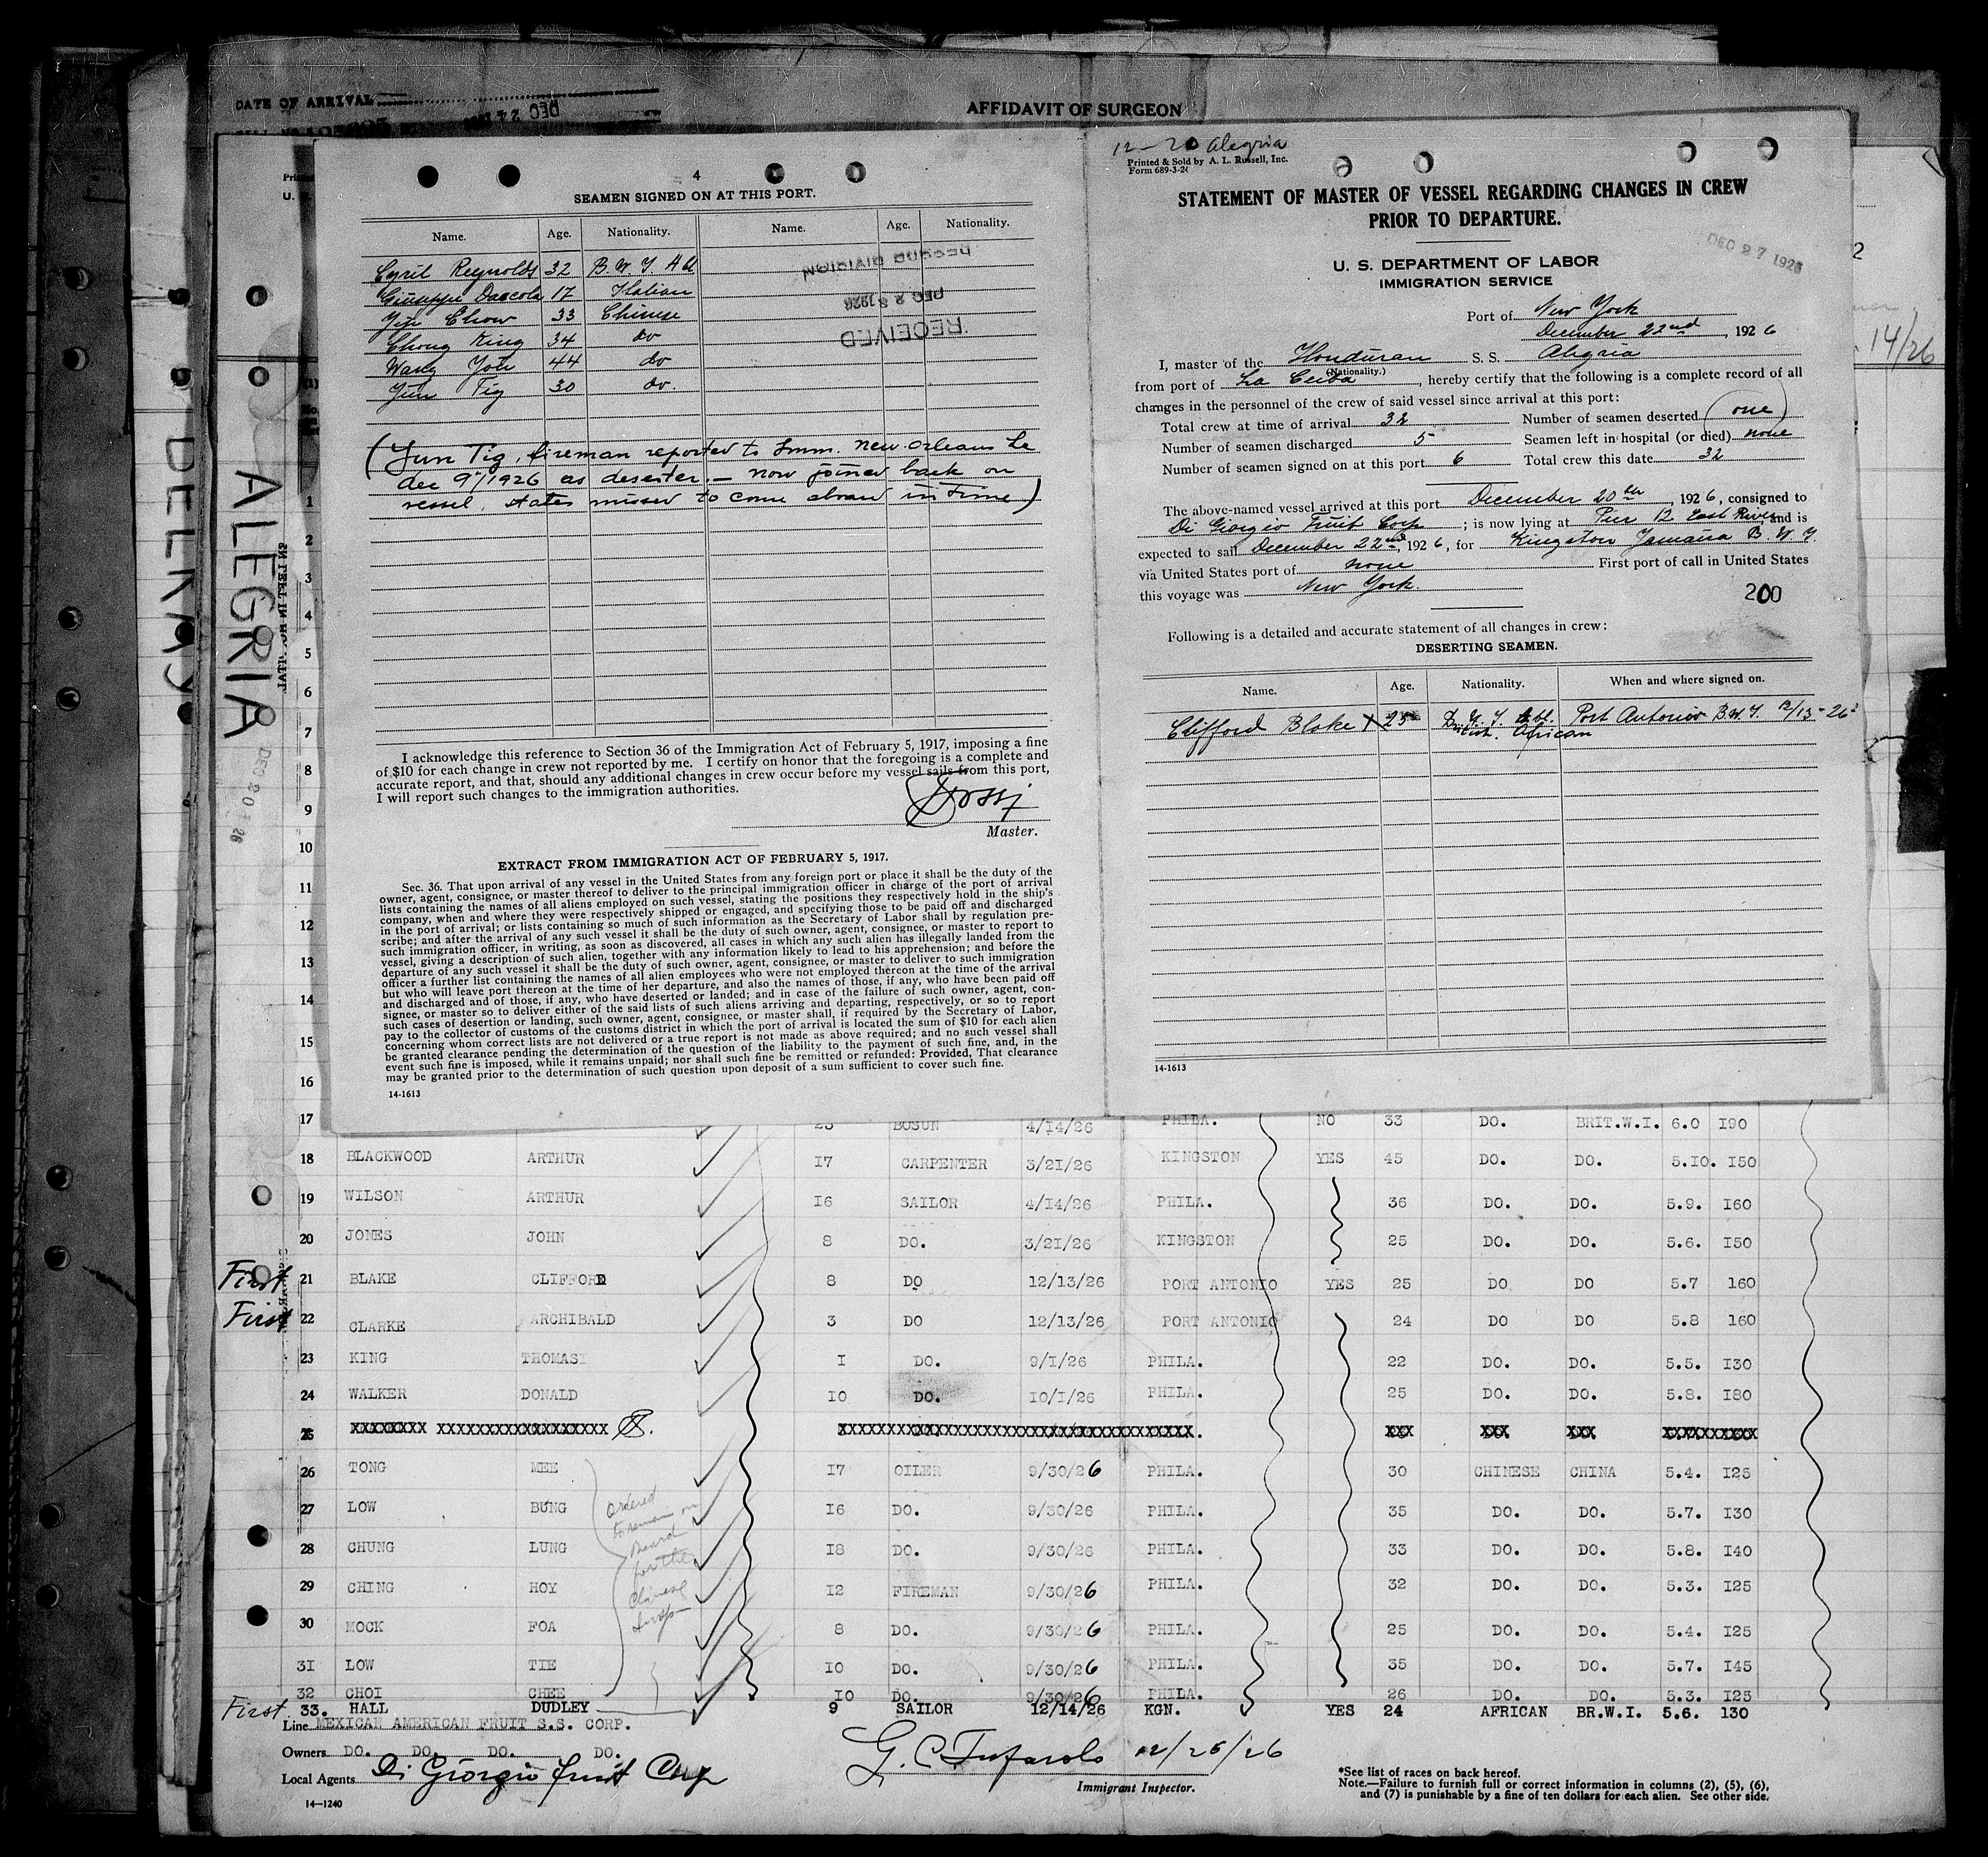 DATE OF ARRIVAL
DEC 24
AFFIDAVIT OF SURGEON
DELKAS
ALEGRIA
DEC 20 1926
14/26
4
SEAMEN SIGNED ON AT THIS PORT.
Name. Age. Nationality. Name. Age. Nationality.
Cyril Reynolds 32 B. W. I. Af
Giuseppe Dascola 17 Italian
Yip Chow 33 Chinese
Chong King 34 do
Wang Yoh 44 do
Yun Tig 30 do.
RECORD DIVISION
DEC 28 1926
RECEIVED
(Yun Tig, fireman reported to Imm. New Orleans La
dec 9th/1926 as deserter. — now joined back on
vessel, states missed to come aboard in time)
I acknowledge this reference to Section 36 of the Immigration Act of February 5, 1917, imposing a fine
of $10 for each change in crew not reported by me. I certify on honor that the foregoing is a complete and
accurate report, and that, should any additional changes in crew occur before my vessel sails from this port,
I will report such changes to the immigration authorities.
Master.
EXTRACT FROM IMMIGRATION ACT OF FEBRUARY 5, 1917.
Sec. 36. That upon arrival of any vessel in the United States from any foreign port or place it shall be the duty of the
owner, agent, consignee, or master thereof to deliver to the principal immigration officer in charge of the port of arrival
lists containing the names of all aliens employed on such vessel, stating the positions they respectively hold in the ship's
company, when and where they were respectively shipped or engaged, and specifying those to be paid off and discharged
in the port of arrival; or lists containing so much of such information as the Secretary of Labor shall by regulation pre-
scribe; and after the arrival of any such vessel it shall be the duty of such owner, agent, consignee, or master to report to
such immigration officer, in writing, as soon as discovered, all cases in which any such alien has illegally landed from the
vessel, giving a description of such alien, together with any information likely to lead to his apprehension; and before the
departure of any such vessel it shall be the duty of such owner, agent, consignee, or master to deliver to such immigration
officer a further list containing the names of all alien employees who were not employed thereon at the time of the arrival
but who will leave port thereon at the time of her departure, and also the names of those, if any, who have been paid off
and discharged and of those, if any, who have deserted or landed; and in case of the failure of such owner, agent, con-
signee, or master so to deliver either of the said lists of such aliens arriving and departing, respectively, or so to report
such cases of desertion or landing, such owner, agent, consignee, or master shall, if required by the Secretary of Labor,
pay to the collector of customs of the customs district in which the port of arrival is located the sum of $10 for each alien
concerning whom correct lists are not delivered or a true report is not made as above required; and no such vessel shall
be granted clearance pending the determination of the question of the liability to the payment of such fine, and, in the
event such fine is imposed, while it remains unpaid; nor shall such fine be remitted or refunded: Provided, That clearance
may be granted prior to the determination of such question upon deposit of a sum sufficient to cover such fine.
14-1613
12-20 Alegria
Printed & Sold by A. L. Russell, Inc.
Form 689-3-24
STATEMENT OF MASTER OF VESSEL REGARDING CHANGES IN CREW
PRIOR TO DEPARTURE.
DEC 27 1926
U. S. DEPARTMENT OF LABOR
IMMIGRATION SERVICE
Port of New York
December 22nd, 1926
I, master of the Honduran S. S. Alegria
(Nationality.)
from port of La Ceiba, hereby certify that the following is a complete record of all
changes in the personnel of the crew of said vessel since arrival at this port:
Total crew at time of arrival 32 Number of seamen deserted (one)
Number of seamen discharged 5 Seamen left in hospital (or died) none
Number of seamen signed on at this port 6 Total crew this date 32
The above-named vessel arrived at this port December 20th, 1926, consigned to
Di Giorgio Fruit Corp; is now lying at Pier 12 East River and is
expected to sail December 22nd, 1926, for Kingston Jamaica B. W. I.
via United States port of none First port of call in United States
this voyage was New York.
200
Following is a detailed and accurate statement of all changes in crew:
DESERTING SEAMEN.
Name. Age. Nationality. When and where signed on.
Clifford Blake X 25 B. W. I. Port Antonio B.W.I. 12/13-26
African
14-1613
1
2
3
4
5
6
7
8
9
10
11
12
13
14
15
16
17 23 BOSUN 4/14/26 PHILA. NO 33 DO. BRIT.W.I. 6.0 190
18 BLACKWOOD ARTHUR 17 CARPENTER 3/21/26 KINGSTON YES 45 DO. DO. 5.10. 150
19 WILSON ARTHUR 16 SAILOR 4/14/26 PHILA. 36 DO. DO. 5.9. 160
20 JONES JOHN 8 DO. 3/21/26 KINGSTON 25 DO. DO. 5.6. 150
First 21 BLAKE CLIFFORD 8 DO 12/13/26 PORT ANTONIO YES 25 DO DO 5.7 160
First 22 CLARKE ARCHIBALD 3 DO 12/13/26 PORT ANTONIO 24 DO DO 5.8 160
23 KING THOMAS 1 DO. 9/1/26 PHILA. 22 DO. DO. 5.5. 130
24 WALKER DONALD 10 DO. 10/1/26 PHILA. 25 DO. DO. 5.8. 180
25 XXXXXXXX XXXXXXXXXXXXXXXXXX XXXXXXXXXXXXXXXXXXXXXXXXXXXXXXXXXXXX. XXX XXX XXX XXXXXXXXXX
26 TONG MEE 17 OILER 9/30/26 PHILA. 30 CHINESE CHINA 5.4. 125
27 LOW BUNG 16 DO. 9/30/26 PHILA. 35 DO. DO. 5.7. 130
28 CHUNG LUNG 18 DO. 9/30/26 PHILA. 33 DO. DO. 5.8. 140
29 CHING HOY 12 FIREMAN 9/30/26 PHILA. 32 DO. DO. 5.3. 125
30 MOCK FOA 8 DO. 9/30/26 PHILA. 25 DO. DO. 5.4. 125
31 LOW TIE 10 DO. 9/30/26 PHILA. 35 DO. DO. 5.7. 145
32 CHOI CHEE 10 DO. 9/30/26 PHILA. 26 DO. DO. 5.3. 125
First 33. HALL DUDLEY 9 SAILOR 12/14/26 KGN. YES 24 AFRICAN BR.W.I. 5.6. 130
Ordered
to remain on
board
for the
Chinese
Insp
Line MEXICAN AMERICAN FRUIT S.S. CORP.
Owners DO. DO. DO. DO.
Local Agents Di Giorgio Fruit Corp
12/26/26
Immigrant Inspector.
14-1240
*See list of races on back hereof.
Note.—Failure to furnish full or correct information in columns (2), (5), (6),
and (7) is punishable by a fine of ten dollars for each alien. See other side.